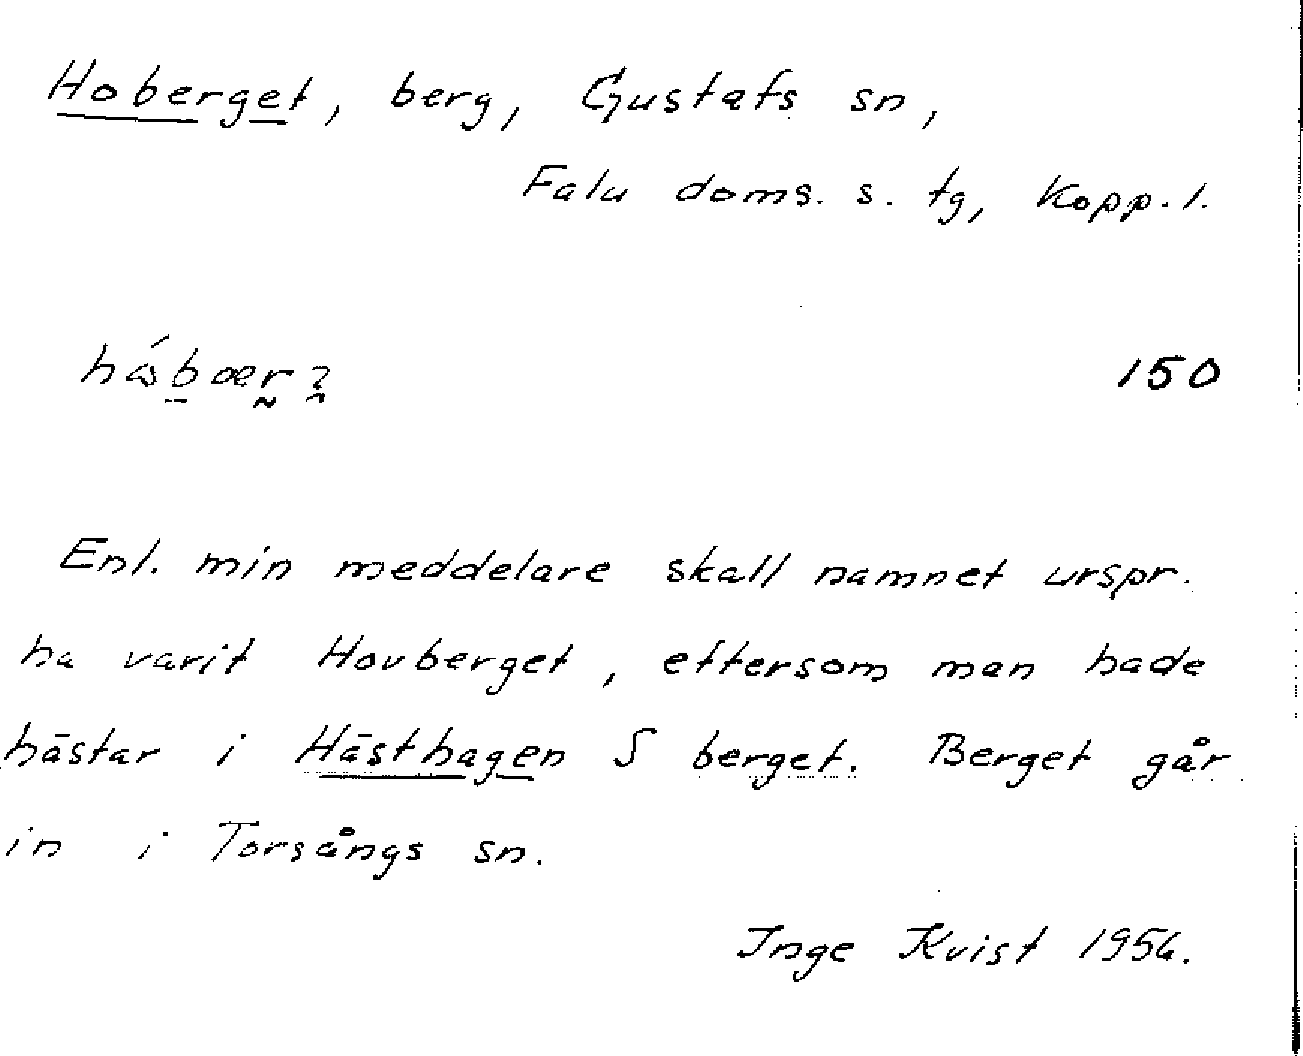 Hoberget, berg, Gustafs sn,
Falu doms. s. tg, Kopp. l.
150
Enl. min meddelare skall namnet urspr.
ha varit Hovberget, eftersom man hade
hästar i Hästhagen S berget. Berget går
in i Torsångs sn.
Inge Kvist 1956.